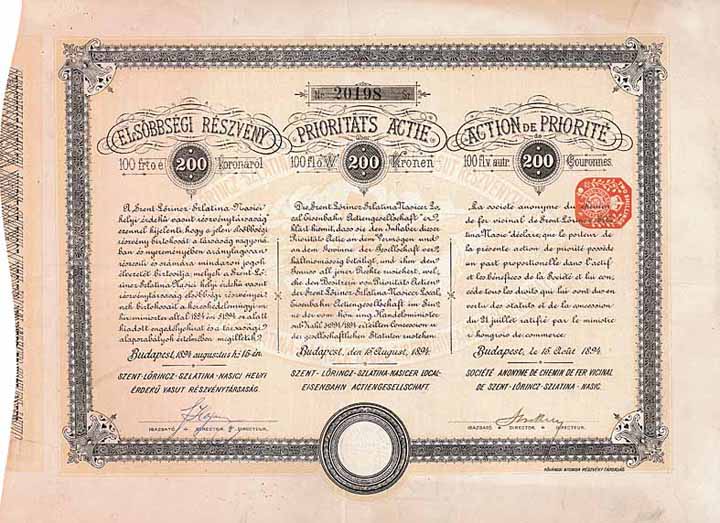 No 20198 Sz.
ELSŐBBSÉGI RÉSZVÉNY
100 frt o é 200 koronáról
A Szent Lőrincz-Szlatina-Nasicei
helyi érdekű vasut részvénytársaság
ezennel kijelenti, hogy a jelen elsőbbségi
részvény birtokosát a társaság vagyoná-
ban és nyereményében aránylagosan
részesíti és számára mindazon jogok
élvezetét biztosítja, melyek a Szent-Lő-
rincz-Szlatina-Nasicei helyi érdekű vasút
részvénytársaság elsőbbségi részvényei-
nek birtokosait a kereskedelemügyi m.
kir. miniszter által 1894 évi sz. alatt
kiadott engedélyokirat és a társasági
alapszabályok értelmében megilletik.
Budapest, 1894 augusztus hó 15-én.
SZENT-LŐRINCZ-SZLATINA-NASICI HELYI
ÉRDEKŰ VASUT RÉSZVÉNYTÁRSASÁG.
IGAZGATÓ DIRECTOR DIRECTEUR.
PRIORITÄTS ACTIE
über
100 fl ö. W. 200 Kronen
Die Szent Lőrincz-Szlatina Nasicer Lo-
cal Eisenbahn Actiengesellschaft er-
klärt hiemit, dass sie den Inhaber dieser
Prioritäts Actie an dem Vermögen und
an dem Gewinne der Gesellschaft ver-
hältnismässig betheiligt, und ihm den
Genuss all jener Rechte zusichert, wel-
che den Besitzern von Prioritäts Actien
der Szent Lőrincz-Szlatina-Nasicer Local
Eisenbahn Actiengesellschaft im Sin-
ne der vom kön ung Handelsminister
ertheilten Concession u.
der gesellschaftlichen Statuten zustehen.
Budapest, den 15 August, 1894.
SZENT-LŐRINCZ-SZLATINA-NASICER LOCAL-
EISENBAHN ACTIENGESELLSCHAFT.
ACTION DE PRIORITÉ
de
100 fl v. autr. 200 Couronnes.
La société anonyme du chemin
de fer vicinal de Szent Lőrincz
Nasic déclare, que le porteur de
la présente action de priorité possède
un part proportionelle dans l'actif
et les bénéfices de la Société et lui con-
cède tous les droits qui lui sont dus en
vertu des statuts et de la concession
du 21 juillet ratifié par le ministre
hongrois de commerce.
Budapest, le 15 Août 1894.
SOCIÉTÉ ANONYME DE CHEMIN DE FER VICINAL
DE SZENT-LŐRINCZ-SZLATINA-NASIC.
IGAZGATÓ DIRECTOR DIRECTEUR.
FŐVÁROSI NYOMDA RÉSZVÉNY-TÁRSASÁG.